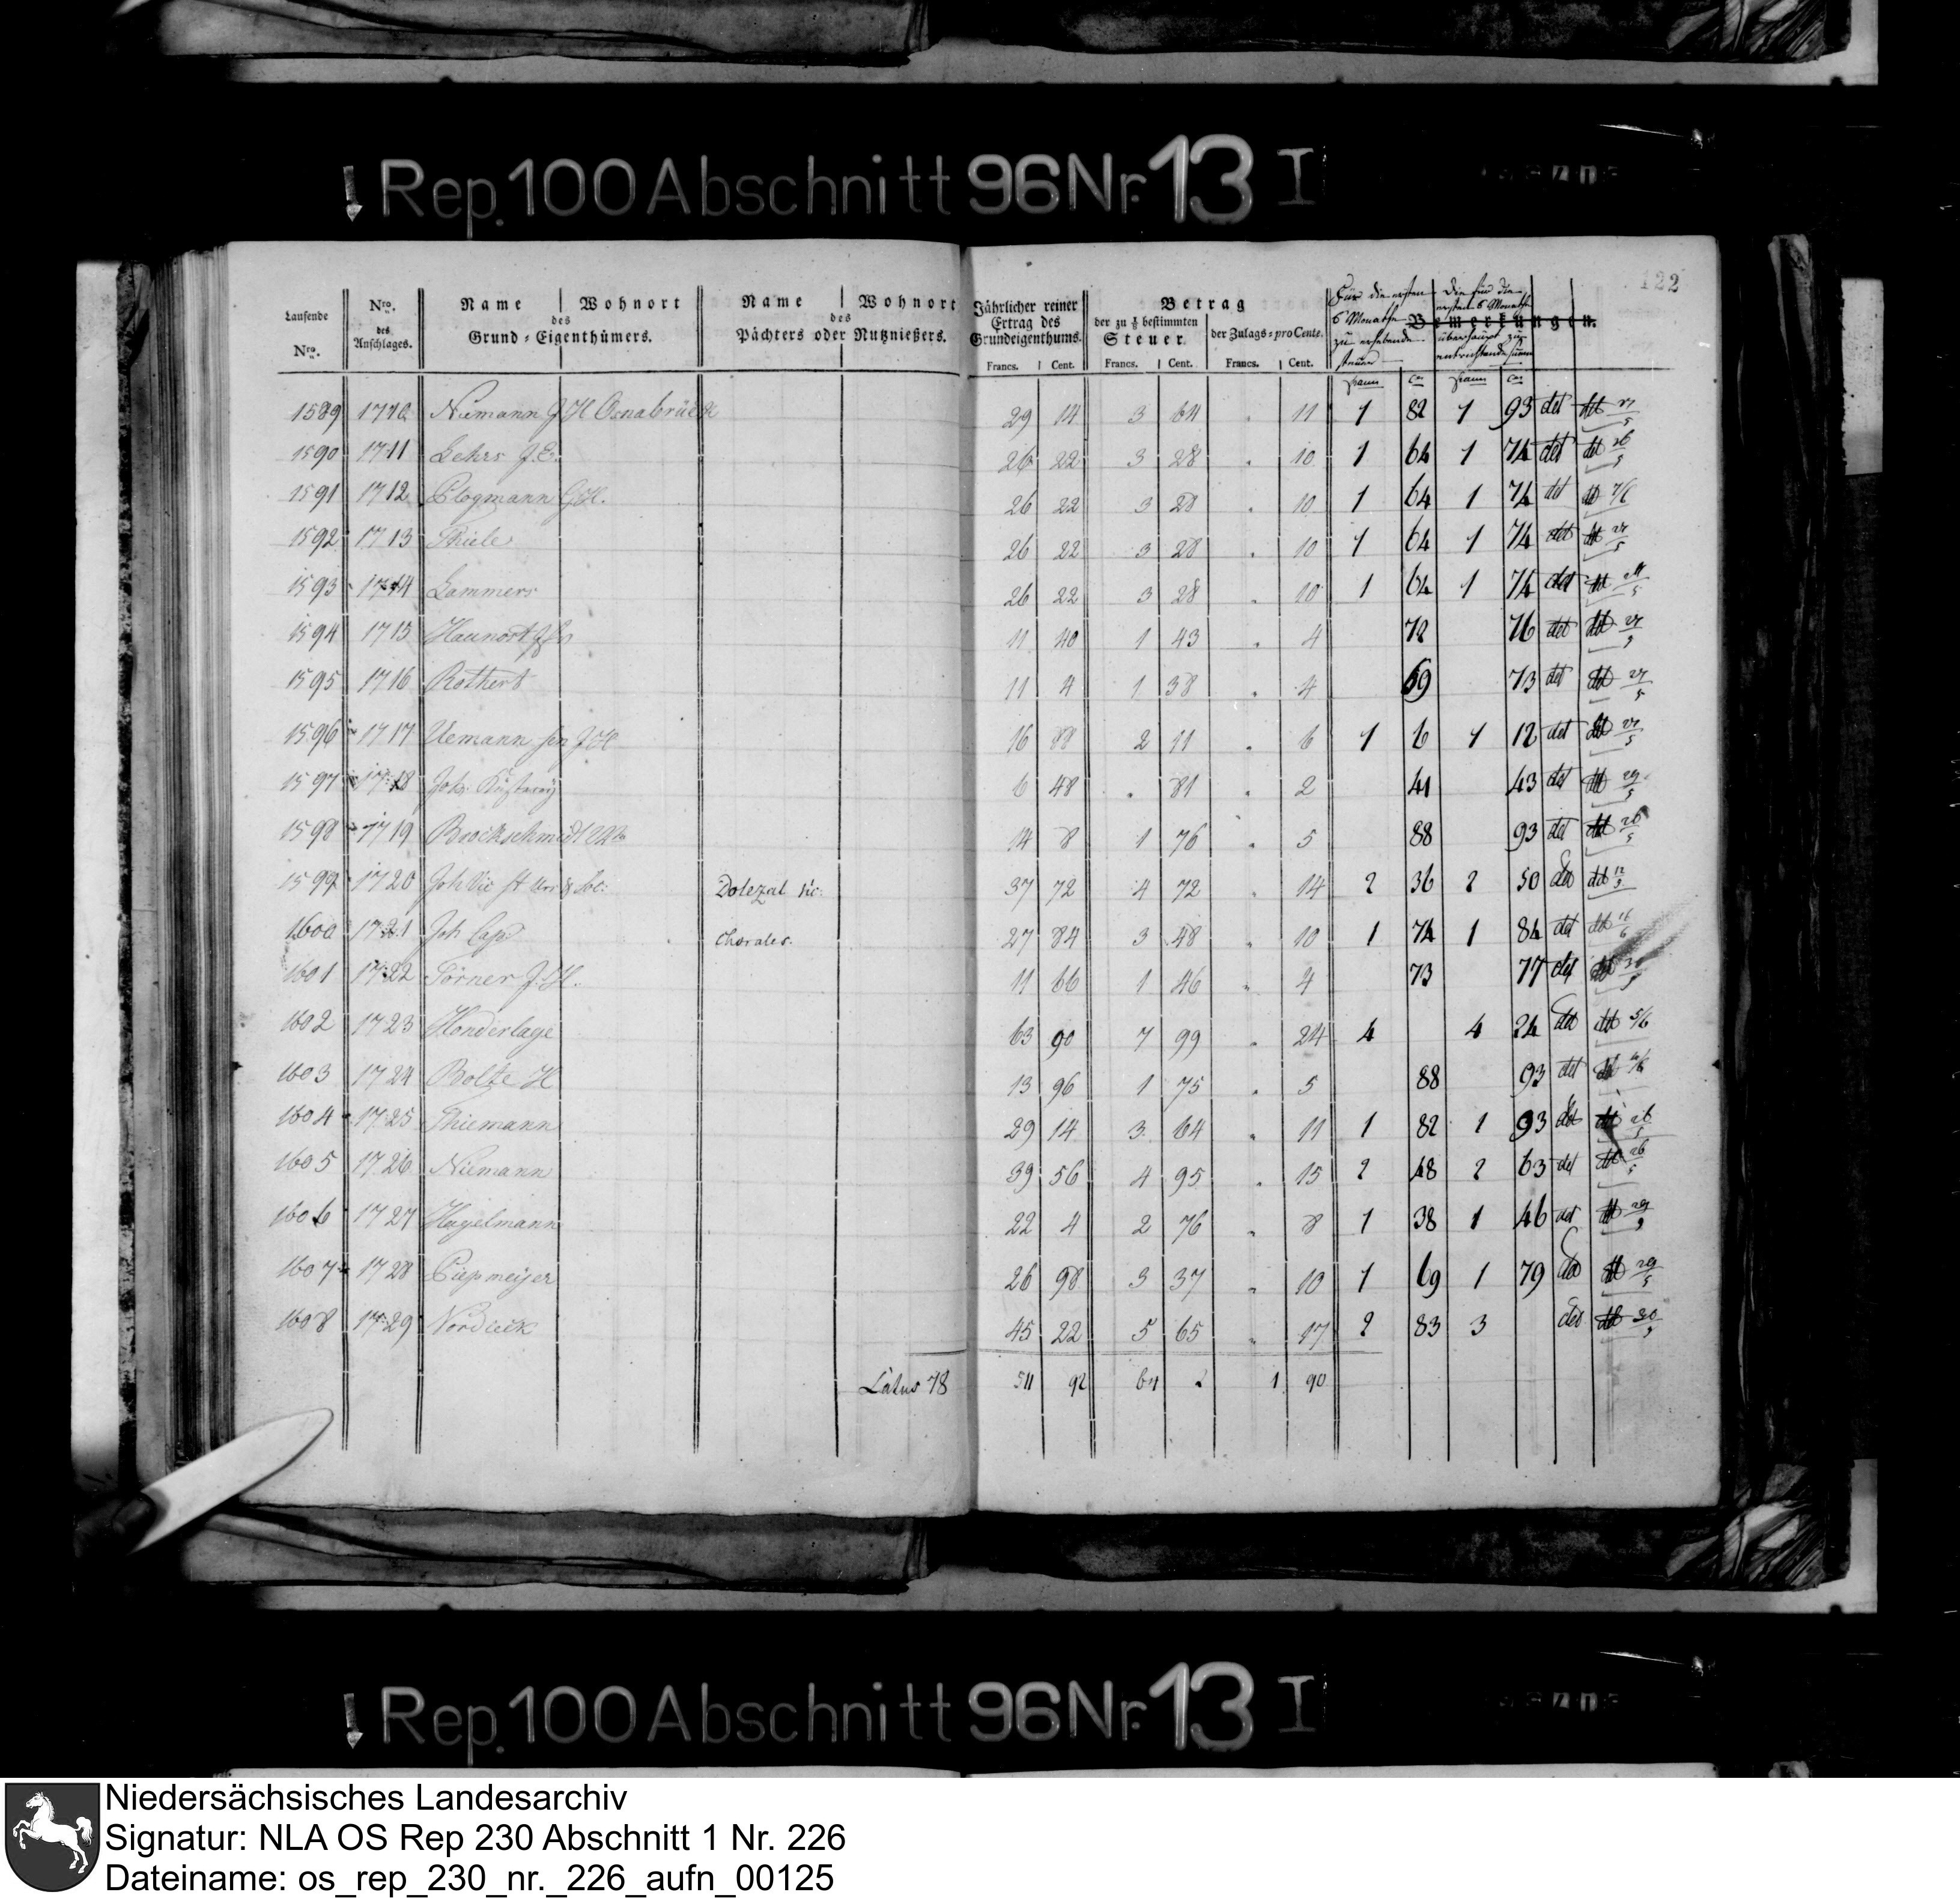 Rep. 100 Abschnitt 96 Nr. 13 I
122
Laufende Nro. | Nro. des Anschlages. | Name | Wohnort des Grund-Eigenthümers. | Name | Wohnort des Pächters oder Nutznießers. | Jährlicher reiner Ertrag des Grundeigenthums. Francs. Cent. | Betrag der zu ⅛ bestimmten Steuer. Francs. Cent. | der Zulags-pro Cente. Francs. Cent. | Für die ersten 6 Monathe zu erhebende Steuer | Die für die ersten 6 Monathe überhaupt zu entrichtende Summe | Bemerkungen.
1589 1710 Niemann J H Osnabrück 29 14 3 64 . 11 1 82 1 93 det det 27/5
1590 1711 Lehrs J.E. 26 22 3 28 . 10 1 64 1 74 det det 26/5
1591 1712 Plogmann G.H. 26 22 3 28 . 10 1 64 1 74 det det 7/6
1592 1713 Thiele 26 22 3 28 . 10 1 64 1 74 det det 27/5
1593 1714 Lammers 26 22 3 28 . 10 1 64 1 74 det det
1594 1715 Haunort 11 40 1 43 . 4 72 76 det det 27/5
1595 1716 Rothert 11 4 1 38 . 4 69 73 det det 27/5
1596 1717 Uemann sen J H 16 88 2 11 . 6 1 6 1 12 det det 27/5
1597 1718 Joh. 6 48 . 81 . 2 41 43 det det 29/5
1598 1719 Brockschmidt 14 8 1 76 . 5 88 93 det det 26/5
1599 1720 Joh Vic St Dolezal vic: 37 72 4 72 . 14 2 36 2 50 det det 12/5
1600 1721 Joh Cap Chorales. 27 84 3 48 . 10 1 74 1 84 det det 16/6
1601 1722 Törner J.H. 11 66 1 46 . 4 73 77 det det
1602 1723 Honderlage 63 90 7 99 . 24 4 4 24 det det 5/6
1603 1724 Bolte H 13 96 1 75 . 5 88 93 det det
1604 1725 Thiemann 29 14 3 64 . 11 1 82 1 93 det det 26/5
1605 1726 Niemann 39 56 4 95 . 15 2 48 2 63 det det 26/5
1606 1727 Hagelmann 22 4 2 76 . 8 1 38 1 46 det det 29/5
1607 1728 Piepmeijer 26 98 3 37 . 10 1 69 1 79 det det 29/5
1608 1729 Nordieck 45 22 5 65 . 17 2 83 3 det det 30/5
Latus 78 511 92 64 2 1 90
Rep. 100 Abschnitt 96 Nr. 13 I
Niedersächsisches Landesarchiv
Signatur: NLA OS Rep 230 Abschnitt 1 Nr. 226
Dateiname: os_rep_230_nr._226_aufn_00125